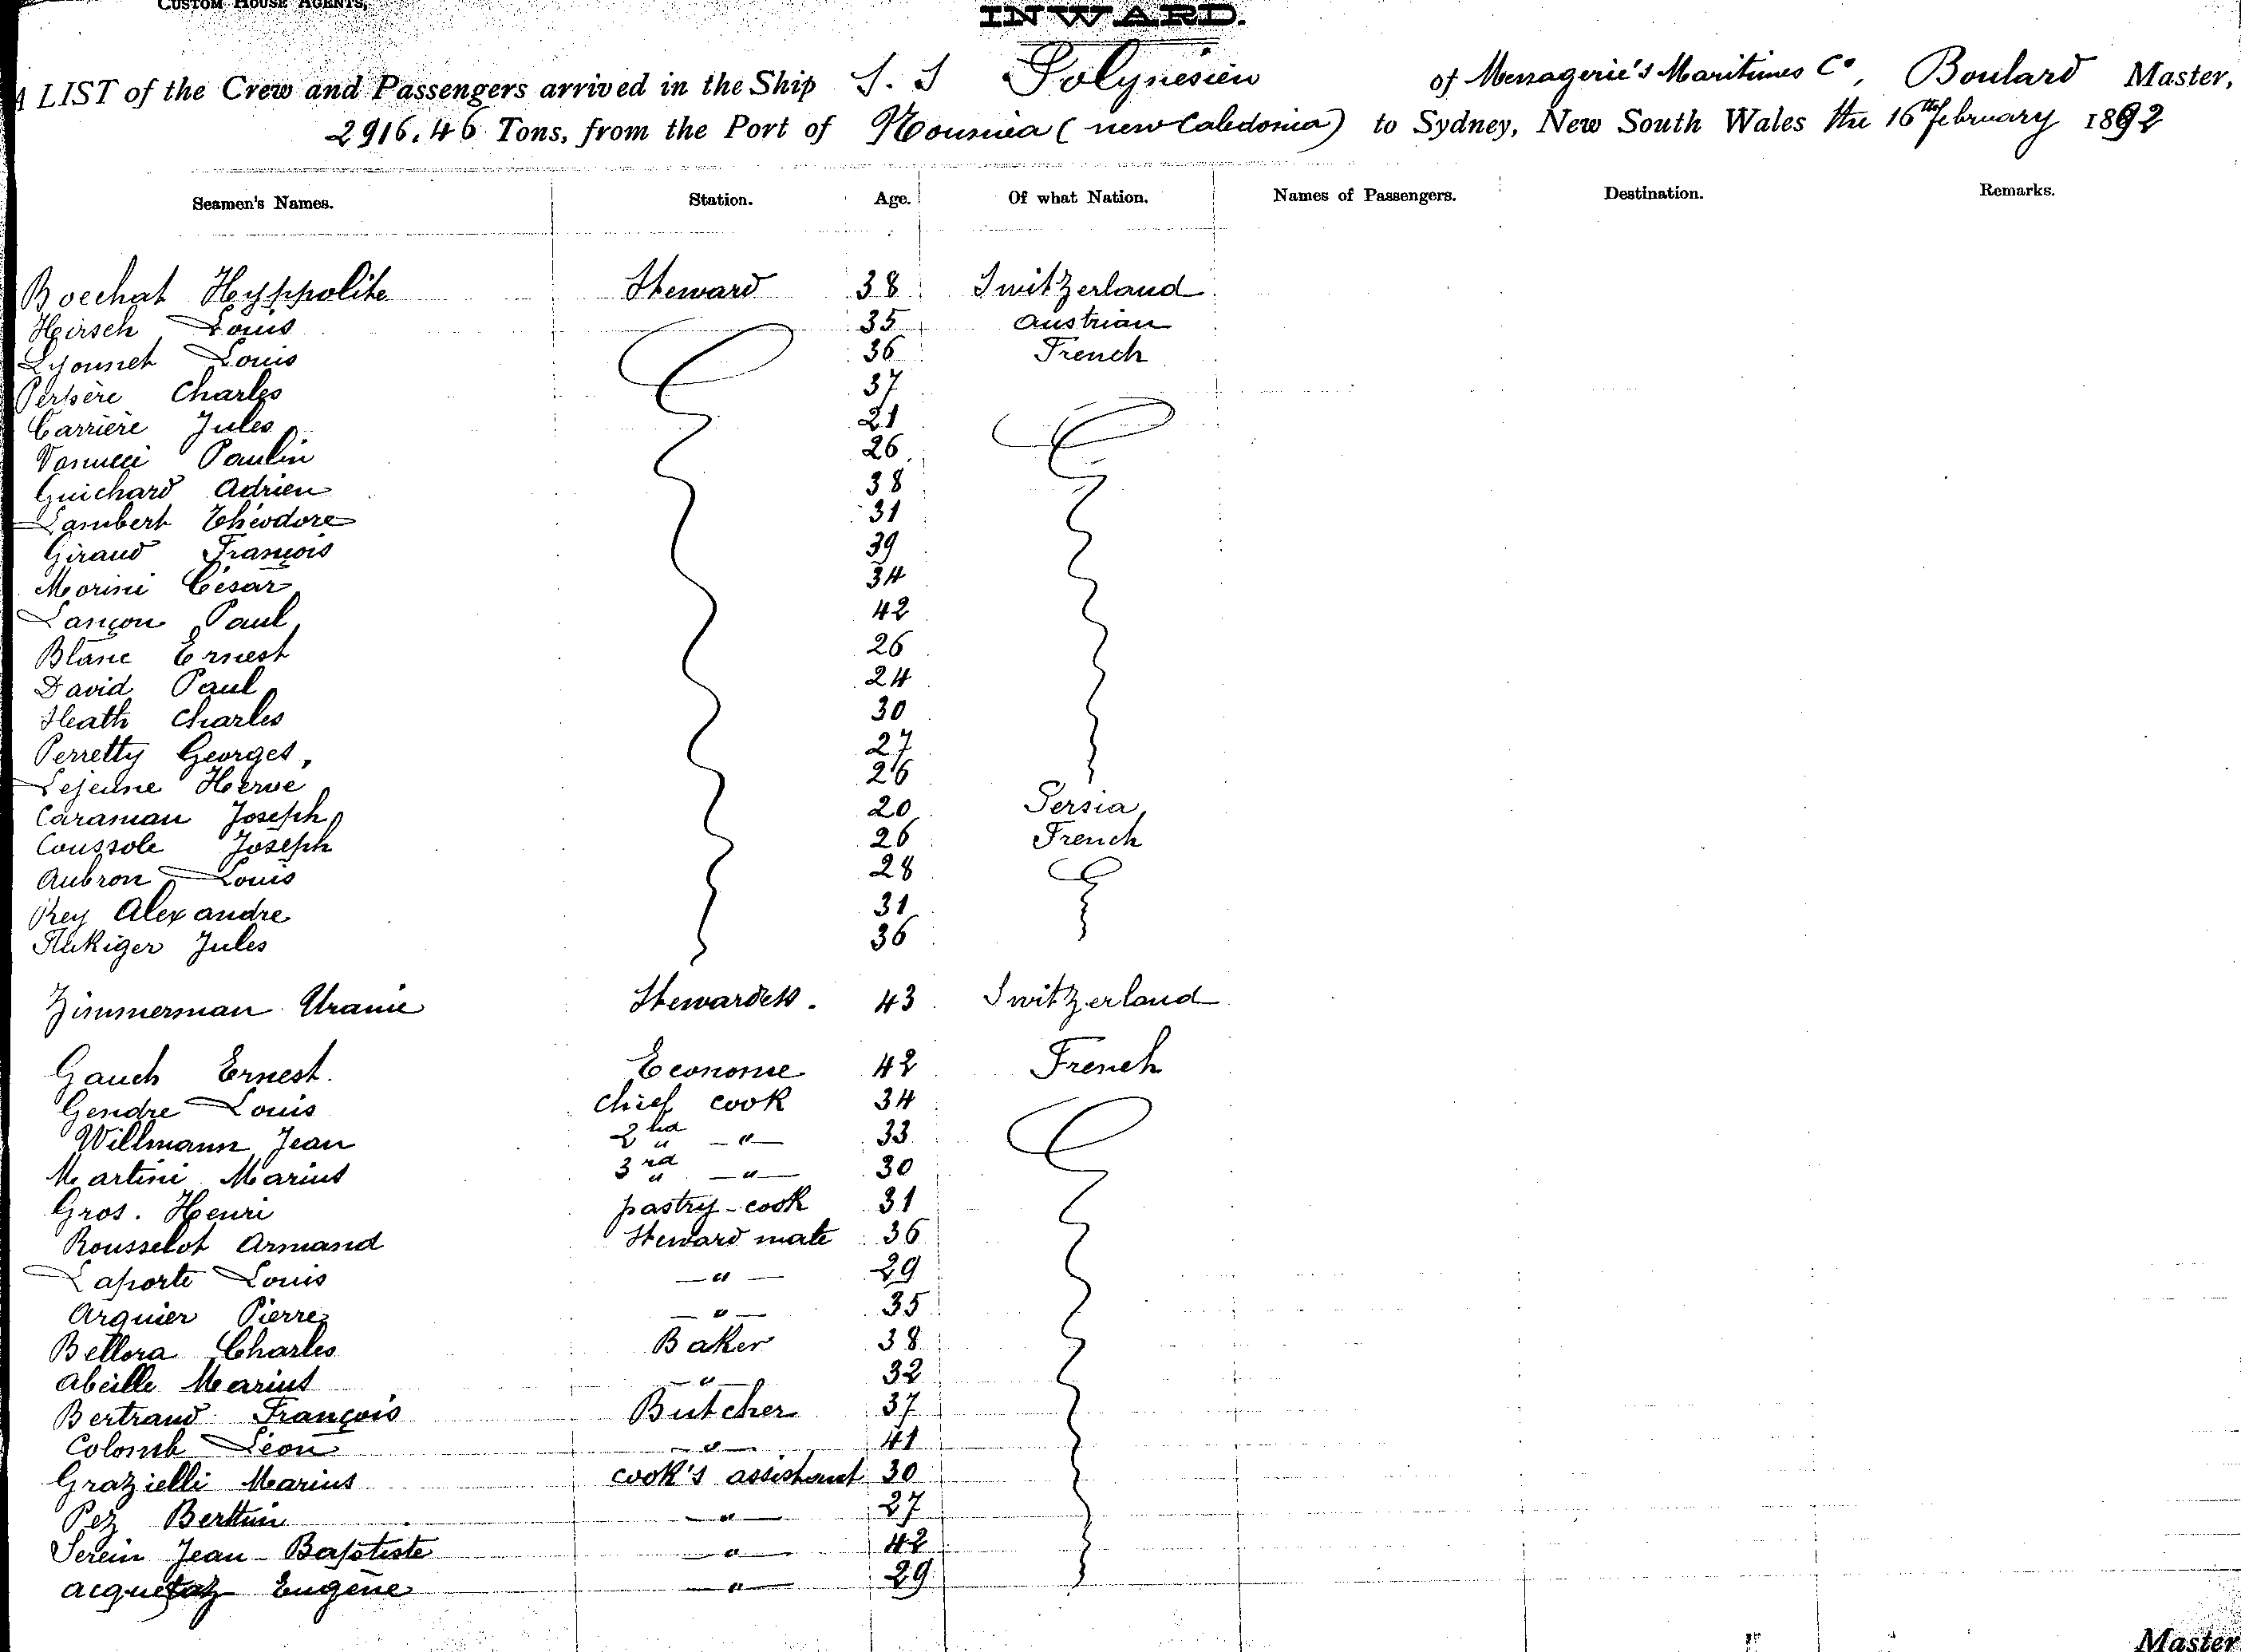 CUSTOM HOUSE AGENTS,
INWARD.
A LIST of the Crew and Passengers arrived in the Ship S. S Polynesien of Messagerie's Maritimes Co, Boulard Master,
2916.46 Tons, from the Port of Noumea (new Caledonia) to Sydney, New South Wales the 16th february 1892
Seamen's Names. Station. Age. Of what Nation. Names of Passengers. Destination. Remarks.
Boechat Hyppolite Steward 38 Switzerland
Hirsch Louis 35 Austrian
Lyonnet Louis 36 French
Charles 37
Carrière Jules 21
Vanucci Paulin 26
Guichard Adrien 38
Lambert Théodore 31
Giraud François 39
Morini César 34
Lançon Paul 42
Blanc Ernest 26
David Paul 24
Heath Charles 30
Perretty Georges, 27
Lejeune Herve 26
Caraman Joseph 20 Persia,
Coussole Joseph 26 French
Aubron Louis 28
Rey Alexandre 31
Jules 36
Zimmerman Uranie Stewardess. 43 Switzerland
Gauch Ernest. Econome 42 French
Gendre Louis chief cook 34
Willmann Jean 2nd " — " — 33
Martini Marius 3rd " — " — 30
Gros. Henri pastry-cook 31
Rousselot Armand Steward mate 36
Laporte Louis — " — 29
Arquier Pierre — " — 35
Bellora Charles Baker 38
Abeille Marius — " — 32
Bertrand François Butcher 37
Colomb Léon — " — 41
Grazielli Marius cook's assistant 30
Pez Berttin — " — 27
Serein Jean-Baptiste — " — 42
Acquetaz Eugène — " — 29
Master